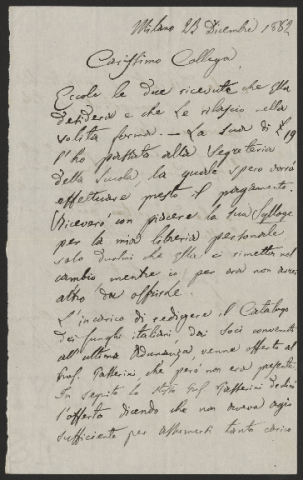 Milano 23 Dicembre 1882
Carissimo Collega,
Eccole le due ricevute che Ella
desidera e che Le rilascio nella
solita forma. — La Sua di £ 19
l'ho passata alla Segreteria
della Scuola, la quale spero vorrà
effettuare presto il pagamento.
Riceverò con piacere la Sua Sylloge
per la mia libreria personale
solo duolmi che Ella ci rimetta nel
cambio mentre io per ora non avrei
altro da offrirle.
L'incarico di redigere il Catalogo
dei funghi italiani, dai Soci convenuti
all'ultima Adunanza, venne offerto al
Prof. Passerini che però non era presente.
In seguito lo stesso Prof. Passerini declinò
l'offerta dicendo che non aveva agio
sufficiente per assumersi tanto carico